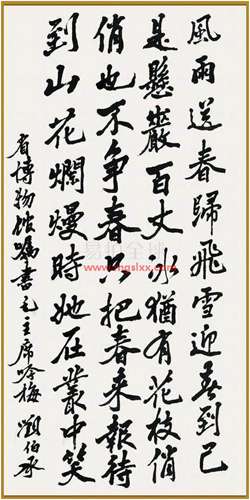 風雨送春歸飛雪迎春到已
是懸巖百丈氷猶有花枝俏
俏也不争春只把春来報待
到山花爛熳時她在叢中笑
省博物馆嘱書毛主席咏梅 劉伯承